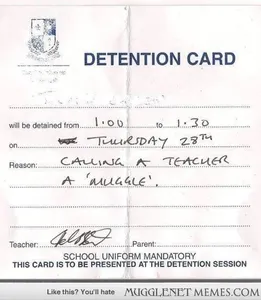 DETENTION CARD
will be detained from 1.00 to 1.30
on THURSDAY 28TH
Reason: CALLING A TEACHER
A 'MUGGLE'.
Teacher: Parent:
SCHOOL UNIFORM MANDATORY
THIS CARD IS TO BE PRESENTED AT THE DETENTION SESSION
Like this? You'll hate MUGGLENETMEMES.COM